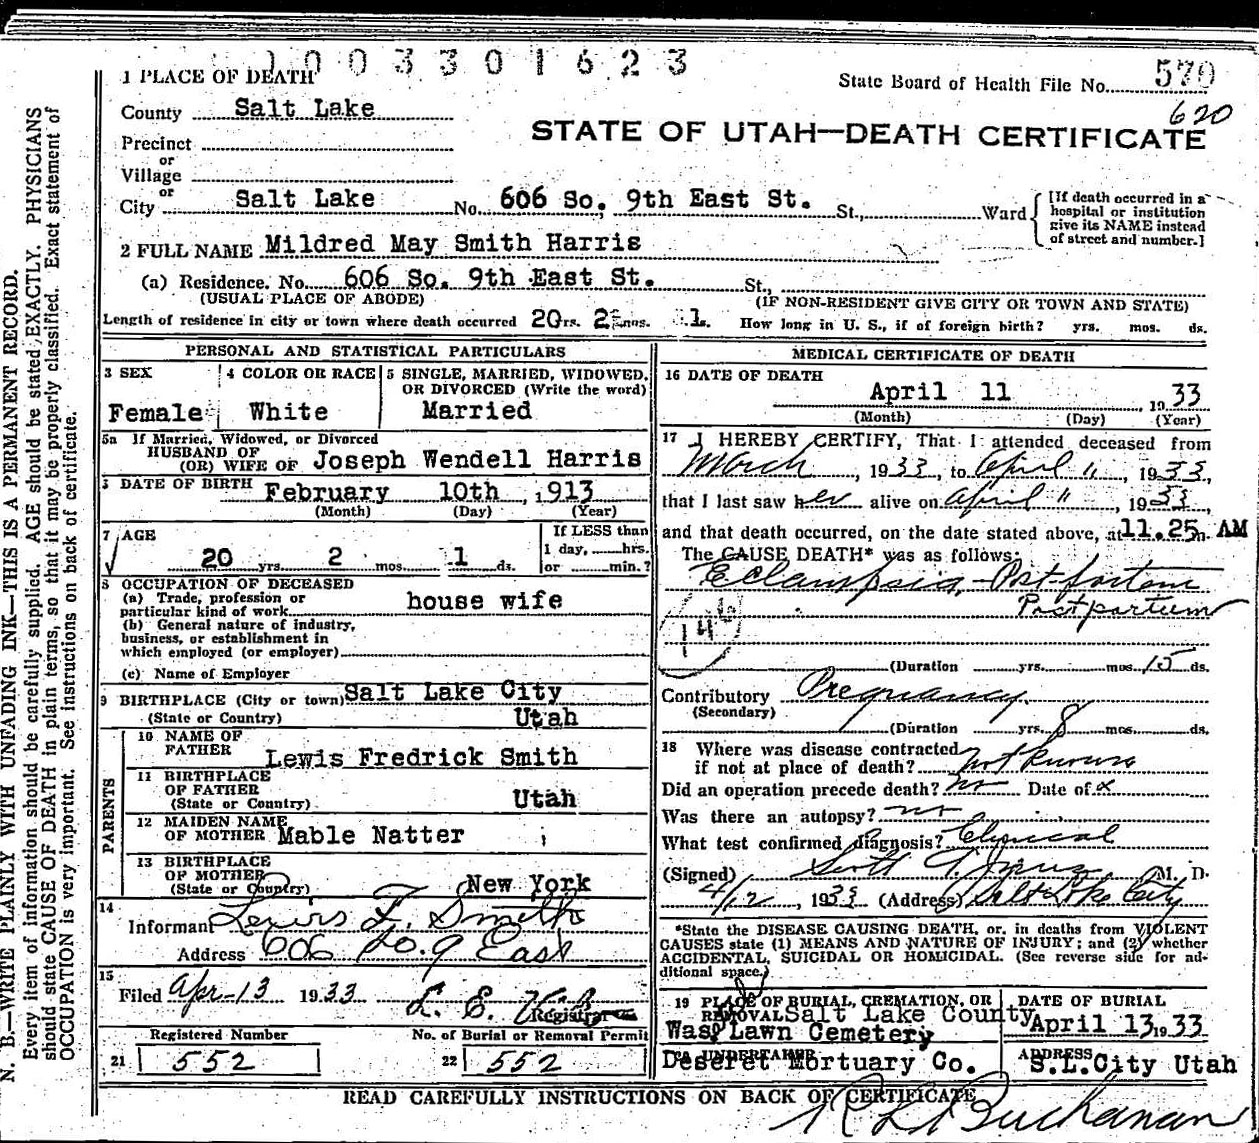 1003301623
1 PLACE OF DEATH
State Board of Health File No. 570
620
County Salt Lake
STATE OF UTAH—DEATH CERTIFICATE
Precinct
or
Village
or
City Salt Lake No. 606 So. 9th East St. St., Ward
[If death occurred in a hospital or institution give its NAME instead of street and number.]
2 FULL NAME Mildred May Smith Harris
(a) Residence. No. 606 So. 9th East St. St.,
(USUAL PLACE OF ABODE) (IF NON-RESIDENT GIVE CITY OR TOWN AND STATE)
Length of residence in city or town where death occurred 20 yrs. 2 mos. 1 ds. How long in U. S., if of foreign birth? yrs. mos. ds.
PERSONAL AND STATISTICAL PARTICULARS
3 SEX 4 COLOR OR RACE 5 SINGLE, MARRIED, WIDOWED,
OR DIVORCED (Write the word)
Female White Married
5a If Married, Widowed, or Divorced
HUSBAND OF
(OR) WIFE OF Joseph Wendell Harris
DATE OF BIRTH February 10th, 1913
(Month) (Day) (Year)
7 AGE
If LESS than
1 day, hrs.
or min.?
20 yrs. 2 mos. 1 ds.
8 OCCUPATION OF DECEASED
(a) Trade, profession or
particular kind of work house wife
(b) General nature of industry,
business, or establishment in
which employed (or employer)
(c) Name of Employer
9 BIRTHPLACE (City or town) Salt Lake City
(State or Country) Utah
PARENTS
10 NAME OF
FATHER Lewis Fredrick Smith
11 BIRTHPLACE
OF FATHER
(State or Country) Utah
12 MAIDEN NAME
OF MOTHER Mable Natter
13 BIRTHPLACE
OF MOTHER
(State or Country) New York
14
Informant Lewis F. Smith
Address 606 So. 9 East
15
Filed Apr-13 1933 L. E.
Registrar
Registered Number No. of Burial or Removal Permit
21 552 22 552
MEDICAL CERTIFICATE OF DEATH
16 DATE OF DEATH
April 11, 1933
(Month) (Day) (Year)
17 I HEREBY CERTIFY, That I attended deceased from
March, 1933, to April 11, 1933,
that I last saw her alive on April 11, 1933,
and that death occurred, on the date stated above, at 11.25 m. AM
The CAUSE DEATH* was as follows:
Eclampsia - Post-partom
Postpartum
14
(Duration yrs. mos. 15 ds.
Contributory Pregnancy
(Secondary)
(Duration yrs. 8 mos. ds.
18 Where was disease contracted
if not at place of death? not known
Did an operation precede death? no Date of x
Was there an autopsy? no
What test confirmed diagnosis? Clinical
(Signed) Scott M. D.
4/12, 1933 (Address) Salt Lake City
*State the DISEASE CAUSING DEATH, or, in deaths from VIOLENT
CAUSES state (1) MEANS AND NATURE OF INJURY; and (2) whether
ACCIDENTAL, SUICIDAL OR HOMICIDAL. (See reverse side for ad-
ditional space.)
19 PLACE OF BURIAL, CREMATION, OR
REMOVAL Salt Lake County
Was. Lawn Cemetery
DATE OF BURIAL
April 13, 1933
20 UNDERTAKER
Deseret Mortuary Co.
ADDRESS
S.L.City Utah
READ CAREFULLY INSTRUCTIONS ON BACK OF CERTIFICATE
Buchanan
N. B.—WRITE PLAINLY WITH UNFADING INK—THIS IS A PERMANENT RECORD.
Every item of information should be carefully supplied. AGE should be stated EXACTLY. PHYSICIANS
should state CAUSE OF DEATH in plain terms, so that it may be properly classified. Exact statement of
OCCUPATION is very important. See instructions on back of certificate.